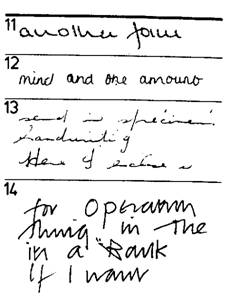 11 another form
12
mind and one amount
13
send in specimen
handwriting
Here I enclose a
14
for Operation
thing in the
in a Bank
If I want